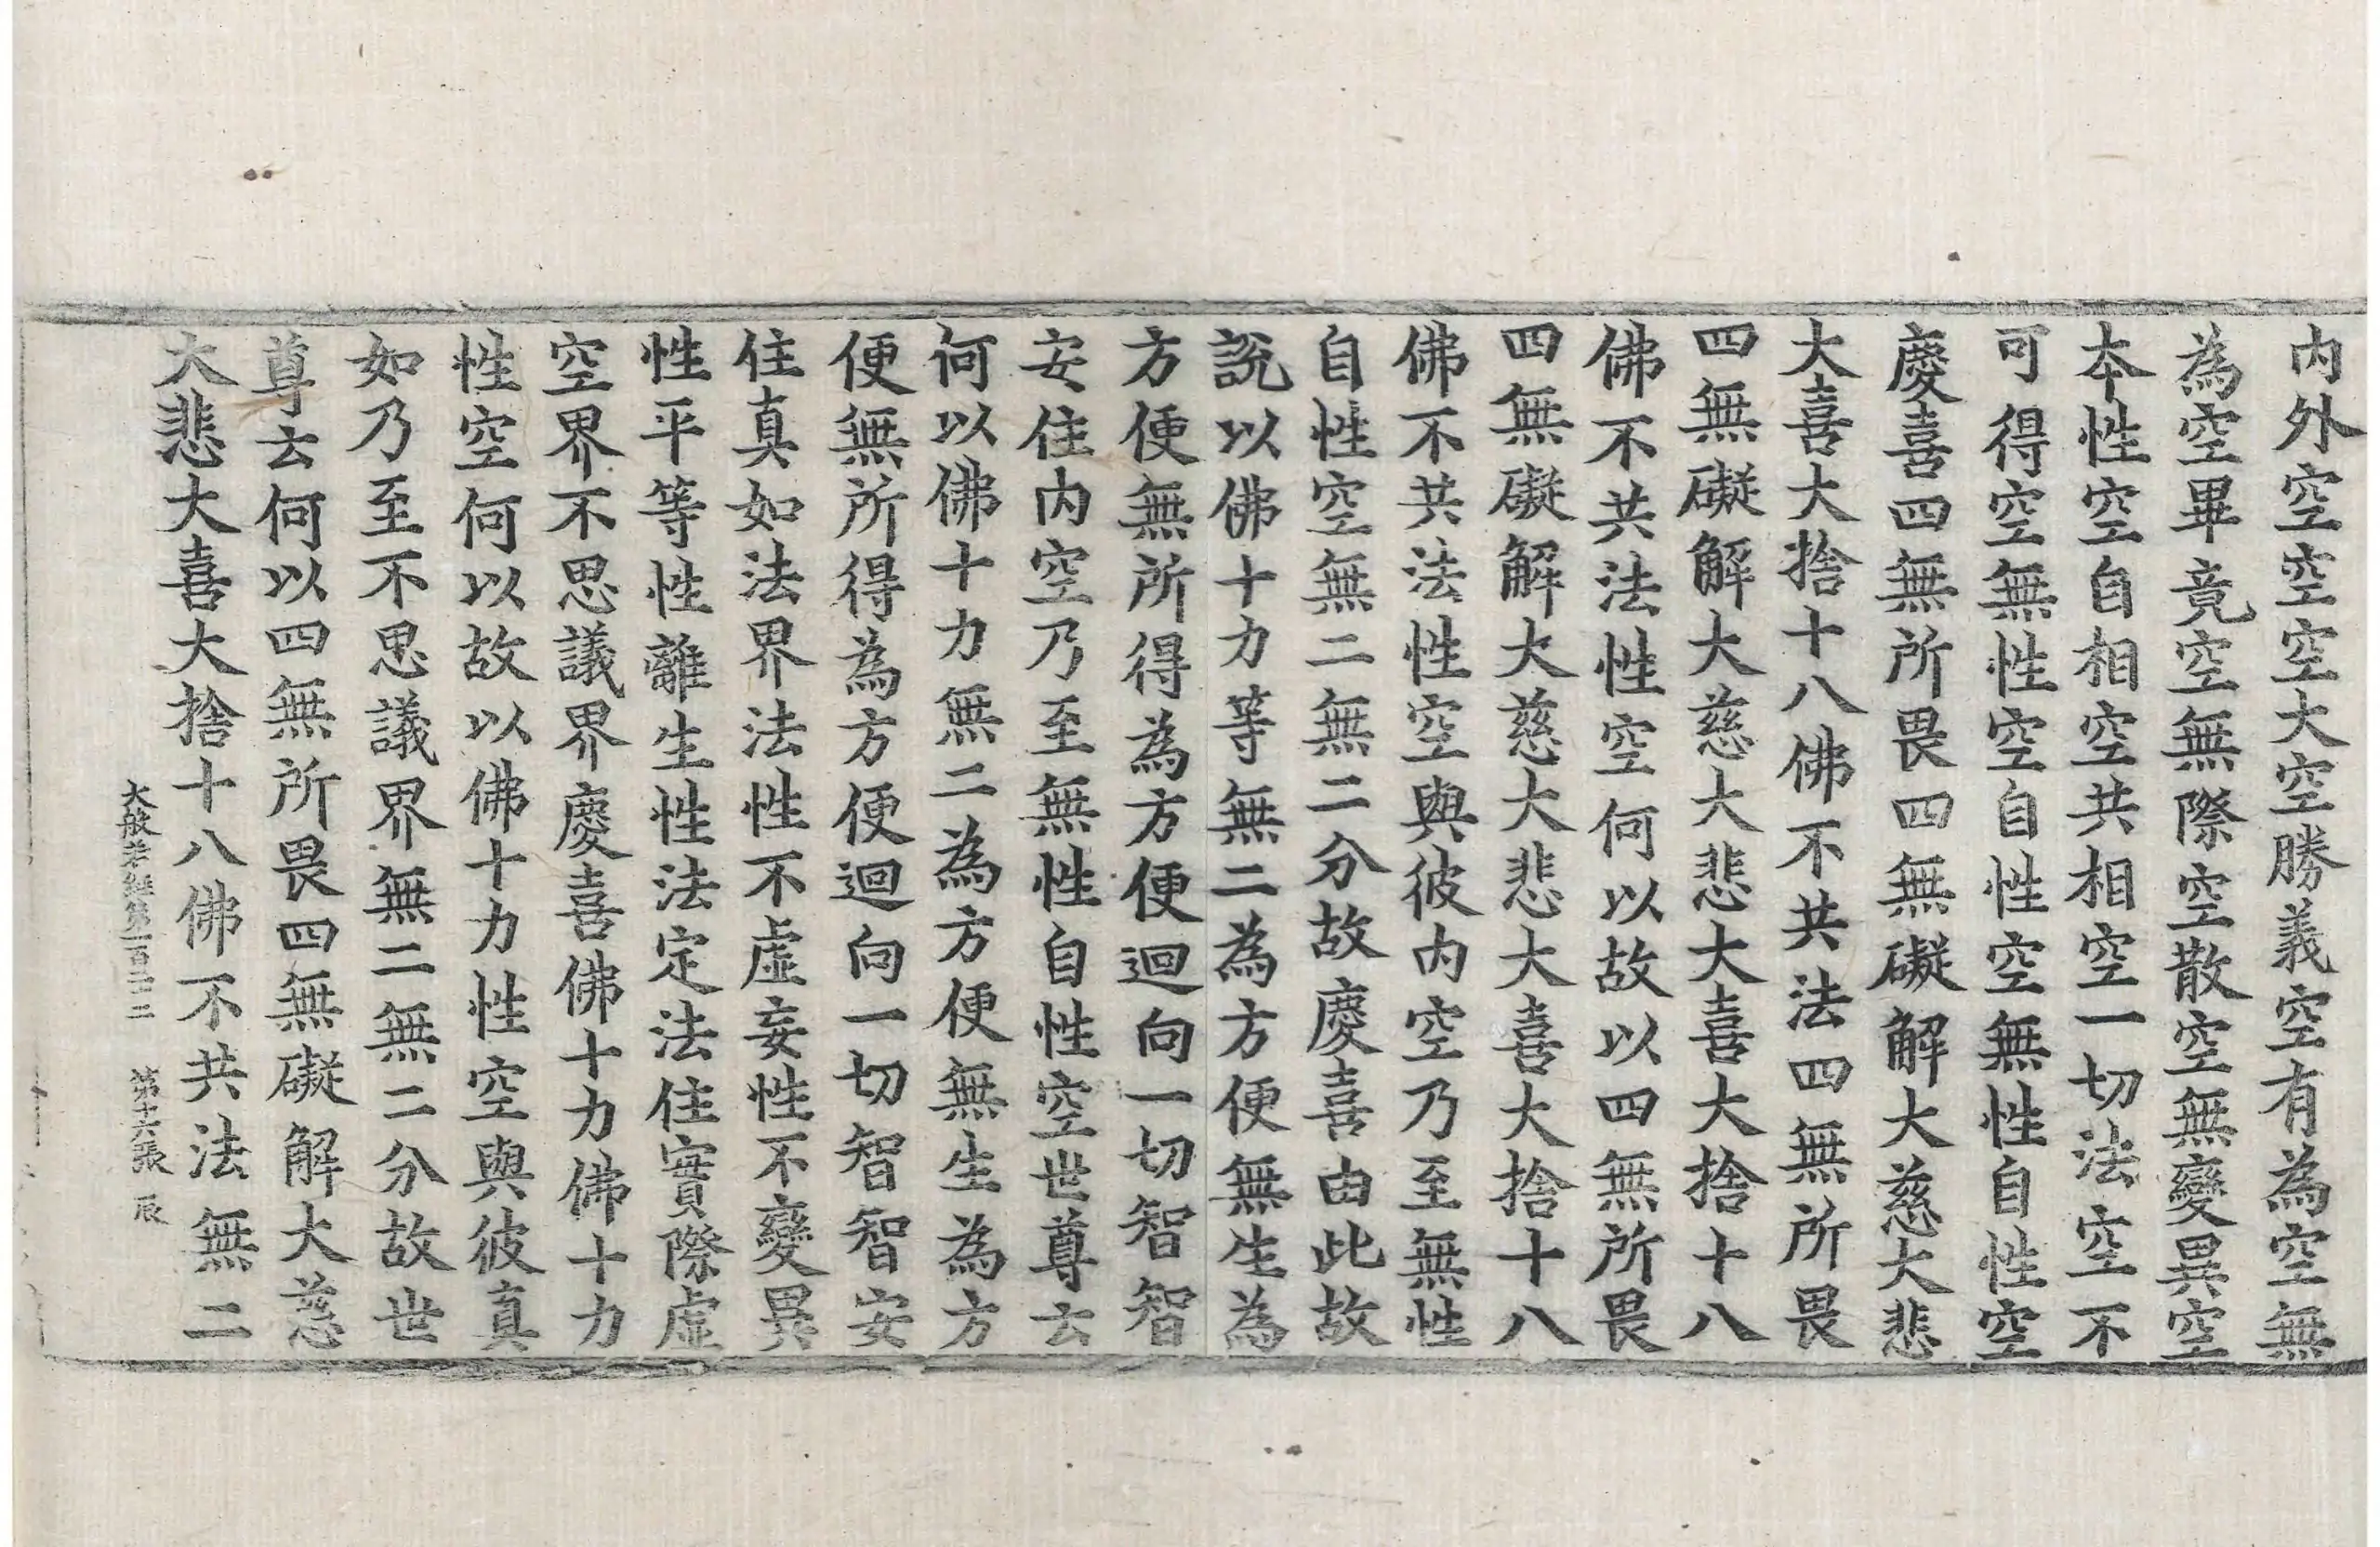 内外空空空大空勝義空有為空無
為空畢竟空無際空散空無變異空
本性空自相空共相空一切法空不
可得空無性空自性空無性自性空
慶喜四無所畏四無礙解大慈大悲
大喜大捨十八佛不共法四無所畏
四無礙解大慈大悲大喜大捨十八
佛不共法性空何以故以四無所畏
四無礙解大慈大悲大喜大捨十八
佛不共法性空與彼内空乃至無性
自性空無二無二分故慶喜由此故
說以佛十力等無二為方便無生為
方便無所得為方便迴向一切智智
安住内空乃至無性自性空世尊云
何以佛十力無二為方便無生為方
便無所得為方便迴向一切智智安
住真如法界法性不虛妄性不變異
性平等性離生性法定法住實際虛
空界不思議界慶喜佛十力佛十力
性空何以故以佛十力性空與彼真
如乃至不思議界無二無二分故世
尊云何以四無所畏四無礙解大慈
大悲大喜大捨十八佛不共法無二
大般若經第一百二十二 第十六張 辰